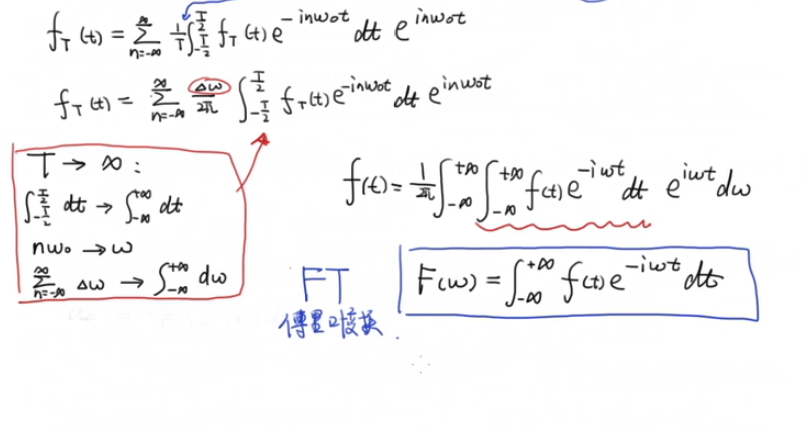 f_T(t) = ∑_{n=-∞}^{∞} 1/T ∫_{-T/2}^{T/2} f_T(t) e^{-inω₀t} dt e^{inω₀t}
f_T(t) = ∑_{n=-∞}^{∞} Δω/2π ∫_{-T/2}^{T/2} f_T(t) e^{-inω₀t} dt e^{inω₀t}
T → ∞ :
∫_{-T/2}^{T/2} dt → ∫_{-∞}^{+∞} dt
nω₀ → ω
∑_{n=-∞}^{∞} Δω → ∫_{-∞}^{+∞} dω
f(t) = 1/2π ∫_{-∞}^{+∞} ∫_{-∞}^{+∞} f(t) e^{-iωt} dt e^{iωt} dω
FT
F(ω) = ∫_{-∞}^{+∞} f(t) e^{-iωt} dt